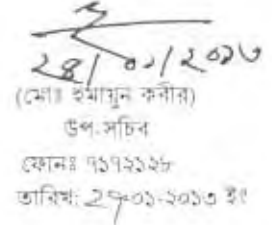 ২৪/০১/২০১৩
(মোঃ হুমায়ুন কবীর)
উপ-সচিব
ফোনঃ ৭১৭২১২৮
তারিখ: ২৭-০১-২০১৩ ইং